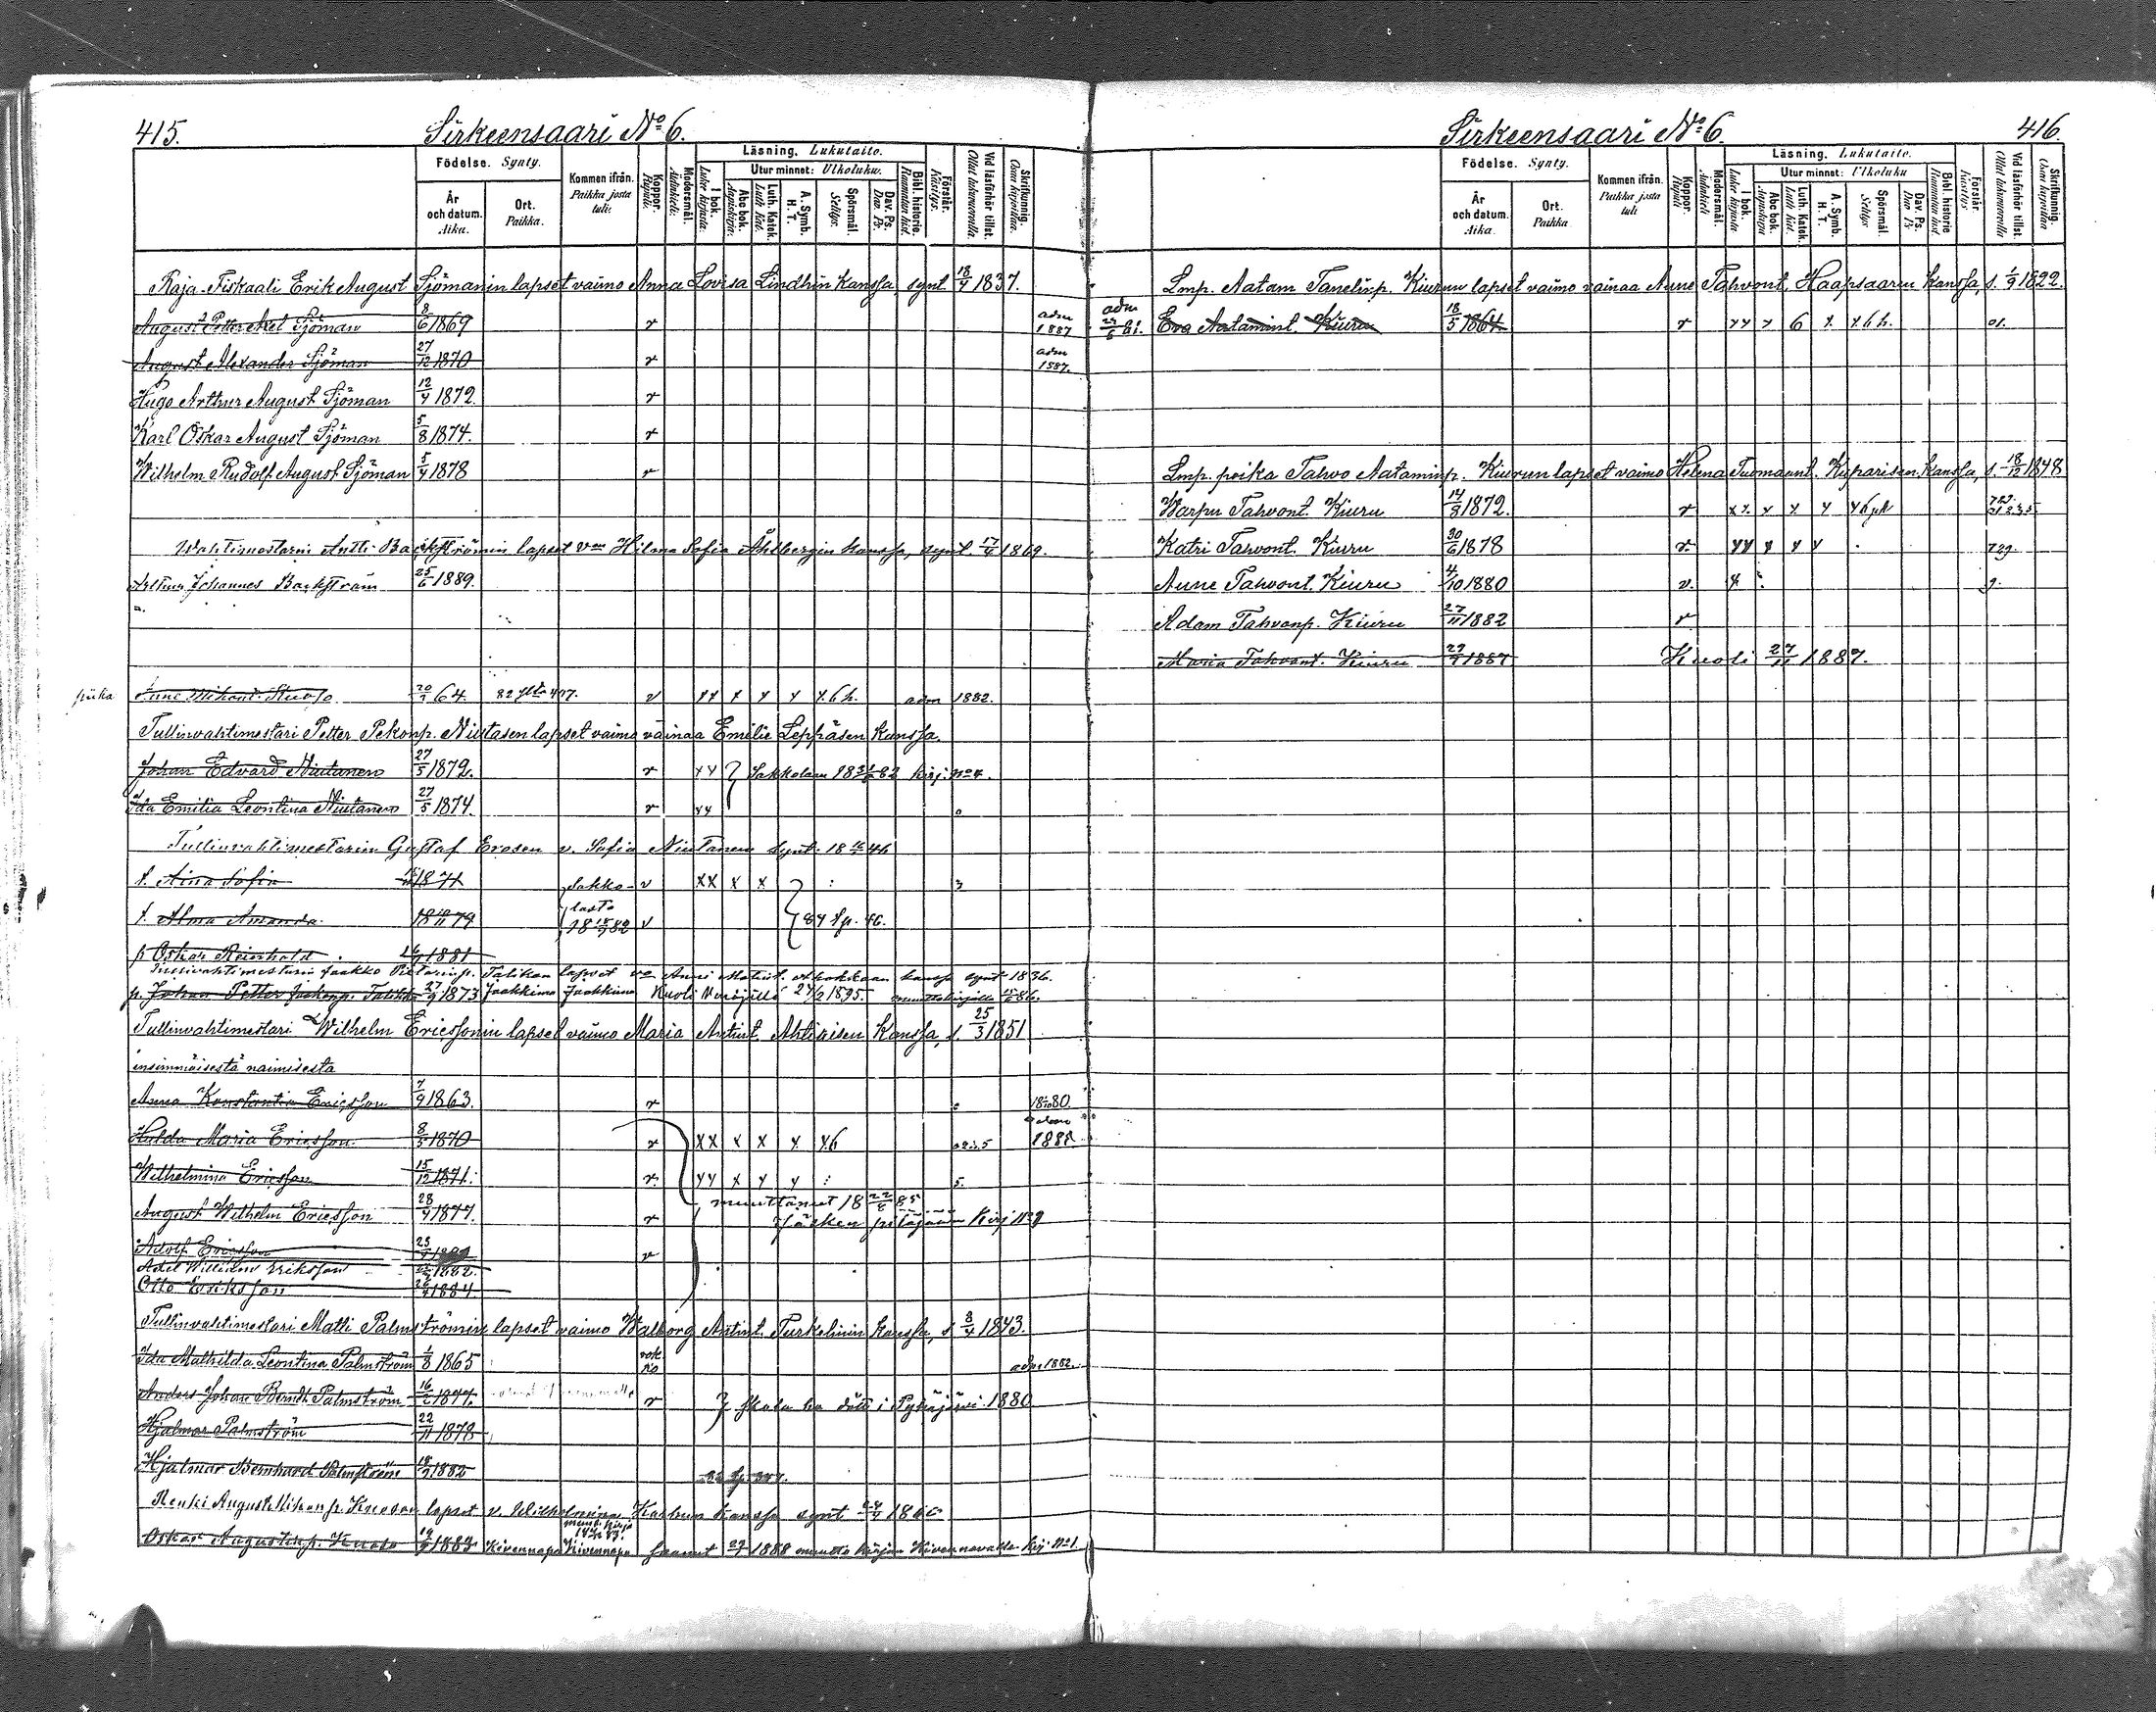 415. Sirkeensaari No 6.
Födelse. Synty.
År och datum. Aika.
Ort. Paikka.
Kommen ifrån. Paikka josta tuli.
Koppor. Rupuli.
Modersmål. Äidinkieli.
Läsning. Lukutaito.
I bok. Luku kirjasta.
Utur minnet: Ulkoluku.
Abc bok. Aapiskirja.
Luth. Katek. Luth. Kat.
A. Symb. H. T.
Spörsmål. Selitys.
Dav. Ps. Dav. Ps.
Bibl. historie. Raamatun hist.
Förstår. Käsitys.
Vid läsförhör tillst. Ollut lukuvuorolla.
Skrifkunnig. Osaa kirjoittaa.
Raja-Fiskaali Erik August Sjömanin lapset vaimo Anna Lovisa Lindhin kanssa, synt. 18/4 1837.
August Petter Axel Sjöman 2/6 1869 r adm 1887
August Alexander Sjöman 27/12 1870 r adm 1887.
Hugo Arthur August Sjöman 12/4 1872. r
Karl Oskar August Sjöman 5/8 1874. r
Wilhelm Rudolf August Sjöman 5/4 1878 r
Wahtimestarin Antti Backströmin lapset von Hilma Sofia Åhlbergin kanssa, synt 17/4 1869.
Arthur Johannes Backström 25/6 1889.
piika Anne Mikont. Kuosa 20/1 64. v xx x x x x 6 h. adm 1882.
Tullinvahtimestari Petter Pekonp. Niutasen lapset vaimo vainaa Emilie Leppäsen kanssa.
Johan Edvard Niutanen 27/5 1872. r xx Sakkolaan 18 31/6 82 kirj. no 4.
Ida Emilia Leontina Niutanen 27/5 1874. r xx
Tullinvahtimestarin Gustaf Erosen v. Sofia Niutanen synt. 18 46
t. Aina Sofia 1871 Sakko- v xx x x
t. Alma Amanda 18 79 lasta 18 82 v 84 Sp. 46.
p Oskar Reinhold 1881
Tullivahtimestarin Jaakko Pietarinp. Talikan lapset va Anni Matint. kanssa synt 1836.
p. Johan Petter Jaakonp. Talikka 27/9 1873 Jaakkima Jaakkima Kuoli 24/2 1895. muuttokirjalla 86.
Tullinvahtimestari Wilhelm Ericssonin lapset vaimo Maria Antint. Ahtiaisen kanssa, s. 25/3 1851
ensimmäisestä naimisesta
Anna Konstantia Ericsson 7/9 1863. r 18 80
Hulda Maria Ericsson 8/5 1870 r xx x x x x6 1888
Wilhelmina Ericsson 15/12 1871. r xx x x x 5.
August Wilhelm Ericsson 28/4 1877. r muuttanut 18 22/6 85 Jäsken pitäjään Kirj No 9
Adolf Ericsson v
Axel William Eriksson 1882.
Otto Eriksson 1884.
Tullinvahtimestari Matti Palmströmin lapset vaimo Walborg Antint. Turkelinin kanssa, s 3/4 1843.
Ida Mathilda Leontina Palmström 1/8 1865 rok. ko adm 1882.
Anders Johan Berndt Palmström 16/2 1877. r 1880
Hjalmar Palmström 22/11 1878
Hjalmar Bernhard Palmström 1882
Renki August Mikonp. Kuosan lapset v. Wilhelmina Karhun kanssa synt
Oskar Augustinp. Kuosa 1883 Kivennapa Kivennapa saanut 1888 muutto kirjan Kivennavalle kirj. No 1.
Sirkeensaari No 6. 416.
Födelse. Synty.
År och datum. Aika.
Ort. Paikka
Kommen ifrån. Paikka josta tuli
Koppor. Rupuli
Modersmål. Äidinkieli
Läsning. Lukutaito.
I bok. Luku kirjasta
Utur minnet: Ulkoluku
Abc bok. Aapiskirja
Luth. Katek. Luth. kat.
A. Symb. H. T.
Spörsmål. Selitys
Dav. Ps. Dav. Ps
Bibl. historie Raamatun hist.
Förstår. Käsitys
Vid läsförhör tillst. Ollut lukuvuorolla
Skrifkunnig. Osaa kirjoittaa
Lmp. Aatam Tanelinp. Kiurun lapset vaimo vainaa Anne Tahvont. Haapsaaren kanssa, s. 1/9 1822.
adm Eva Aatamint. Kiuru 18/5 1864. r xx x 6 x x 6 h. 01.
Lmp. poika Tahvo Aataminp. Kiurun lapset vaimo Helena Tuomaant. Kiparisen kanssa, s. 18/12 1848
Warpu Tahvont. Kiuru 14/3 1872. r xx x x x
Katri Tahvont. Kiuru 30/6 1878 r. xx x x x 729.
Anne Tahvont. Kiuru 4/10 1880 v. x 9.
Adam Tahvonp. Kiuru 27/11 1882 r
Maria Tahvont. Kiuru 1887 Kuoli 27/11 1887.